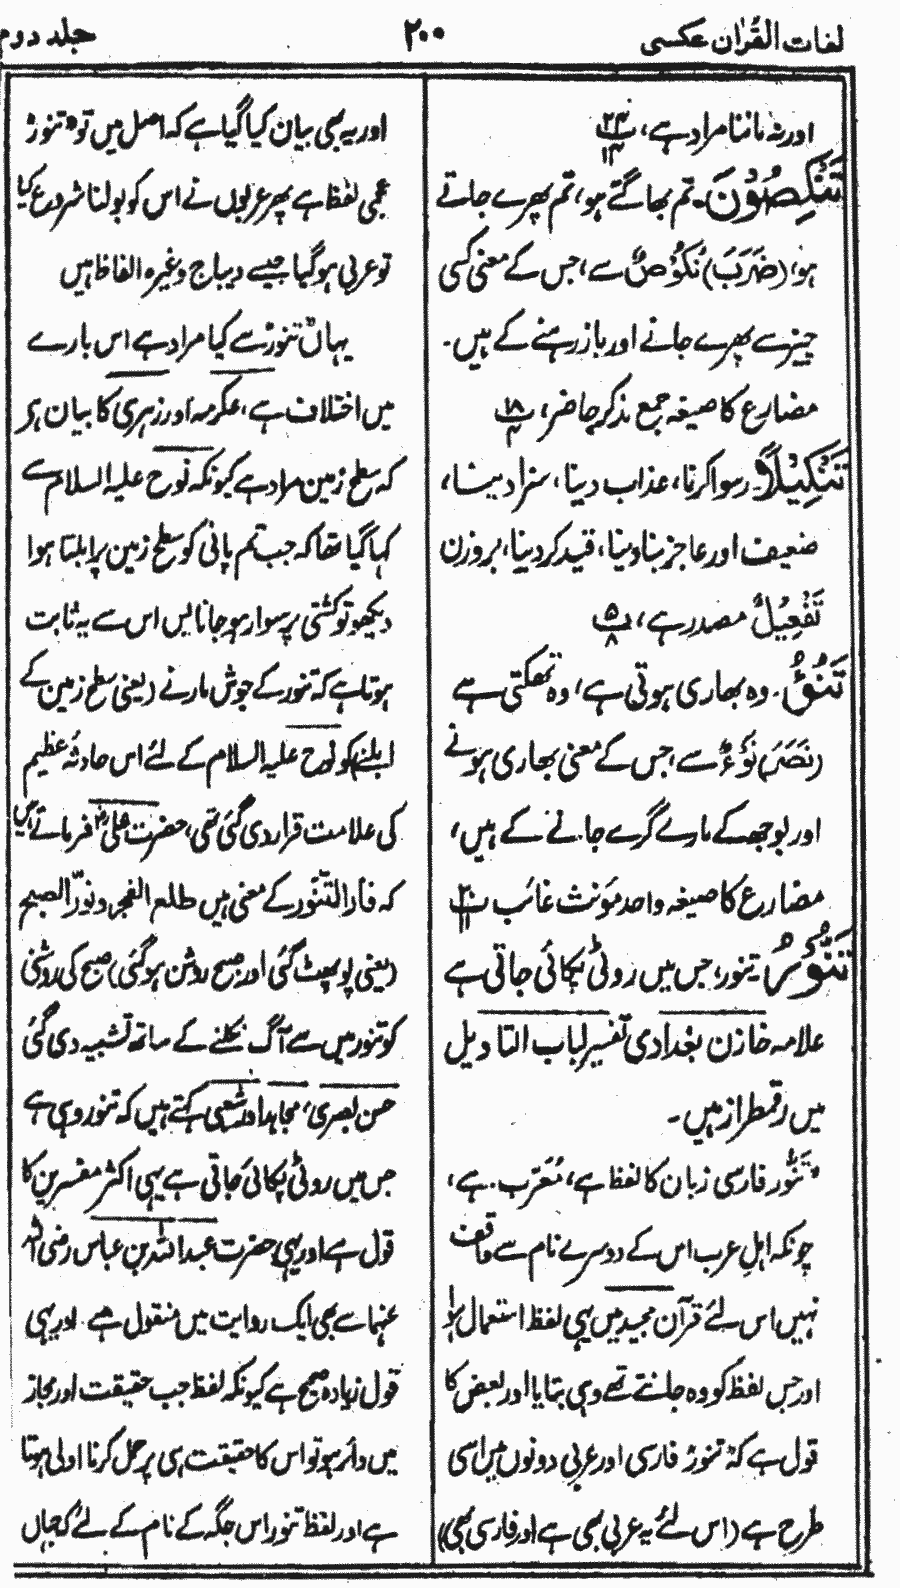 لغات القرآن عکسی
۲۰۰
جلد دوم
اور نہ ماننا مراد ہے، پ۲۴ ۱۳
تَنْكِصُوْنَ۔ تم بھاگتے ہو، تم پھرے جاتے
ہو، (ضَرَبَ) نُكُوْصٌ سے، جس کے معنی کسی
چیز سے پھرے جانے اور باز رہنے کے ہیں۔
مضارع کا صیغہ جمع مذکر حاضر، پ۱۸ ۴
تَنْكِيْلًا۔ رسوا کرنا، عذاب دینا، سزا دینا،
ضعیف اور عاجز بنا دینا، قید کر دینا، بروزن
تَفْعِيْلٌ مصدر ہے، پ۵ ۸
تَنُوْٓءُ۔ وہ بھاری ہوتی ہے، وہ تھکتی ہے
(نَصَرَ) نَوْءٌ سے، جس کے معنی بھاری ہونے
اور بوجھ کے مارے گرے جانے کے ہیں،
مضارع کا صیغہ واحد مؤنث غائب پ۲۰ ۱۱
تَنُّوْرُ تنور، جس میں روٹی پکائی جاتی ہے
علامہ خازن بغدادی تفسیر لباب التاویل
میں رقمطراز ہیں۔
"تَنُّور فارسی زبان کا لفظ ہے، مُعَرَّب ہے،
چونکہ اہلِ عرب اس کے دوسرے نام سے واقف
نہیں اس لئے قرآن مجید میں یہی لفظ استعمال ہوا
اور جس لفظ کو وہ جانتے تھے وہی بتایا اور بعض کا
قول ہے کہ تنور فارسی اور عربی دونوں میں اسی
طرح ہے (اس لئے یہ عربی بھی ہے اور فارسی بھی)
اور یہ بھی بیان کیا گیا ہے کہ اصل میں تو "تنور"
عجمی لفظ ہے پھر عربوں نے اس کو بولنا شروع کیا
تو عربی ہو گیا جیسے دیباج وغیرہ الفاظ ہیں
یہاں تنور سے کیا مراد ہے اس بارے
میں اختلاف ہے، عکرمہ اور زہری کا بیان ہے
کہ سطح زمین مراد ہے کیونکہ نوح علیہ السلام سے
کہا گیا تھا کہ جب تم پانی کو سطح زمین پر ابلتا ہوا
دیکھو تو کشتی پر سوار ہو جانا پس اس سے یہ ثابت
ہوتا ہے کہ تنور کے جوش مارنے (یعنی سطح زمین کے
ابلنے) کو نوح علیہ السلام کے لئے اس حادثہ عظیم
کی علامت قرار دی گئی تھی، حضرت علیؓ فرماتے ہیں
کہ فَارَ التَّنُّور کے معنی ہیں طلع الفجر و نوّر الصبح
(یعنی پو پھٹ گئی اور صبح روشن ہو گئی) صبح کی روشنی
کو تنور میں سے آگ نکلنے کے ساتھ تشبیہ دی گئی
حسن بصری، مجاہد اور شعبی کہتے ہیں کہ تنور وہی ہے
جس میں روٹی پکائی جاتی ہے یہی اکثر مفسرین کا
قول ہے اور یہی حضرت عبد اللہ بن عباس رضی اللہ
عنہما سے بھی ایک روایت میں منقول ہے۔ اور یہی
قول زیادہ صحیح ہے کیونکہ لفظ جب حقیقت اور مجاز
میں دائر ہو تو اس کا حقیقت ہی پر حمل کرنا اولیٰ ہوتا
ہے اور لفظ تنور اس جگہ کے نام کے لئے کہ جہاں